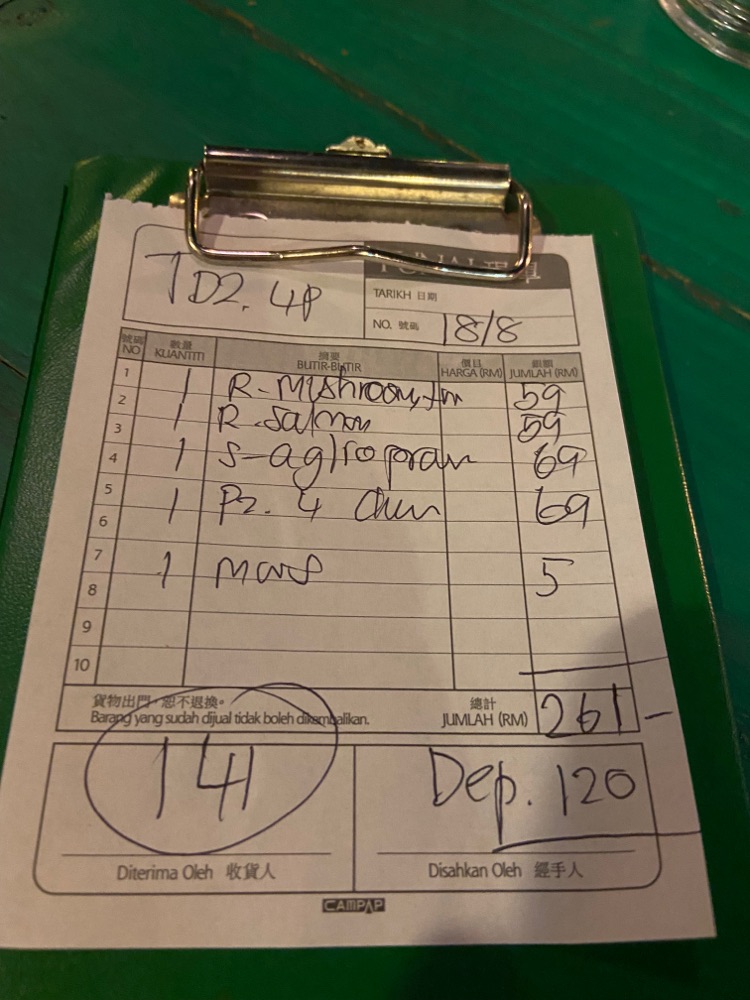 TD2. 4P
TUNAI 現單
TARIKH 日期
NO. 號碼 18/8
號碼 NO 數量 KUANTITI 摘要 BUTIR-BUTIR 價目 HARGA (RM) 銀額 JUMLAH (RM)
1 1 R-Mushroom 59
2 1 R-Salmon 59
3
4 1 S-aglio prawn 69
5 1 Pz. 4 69
6
7 1 5
8
9
10
貨物出門·恕不退換。
Barang yang sudah dijual tidak boleh dikembalikan.
總計
JUMLAH (RM) 261-
141
Dep. 120
Diterima Oleh 收貨人
Disahkan Oleh 經手人
CAMPAP